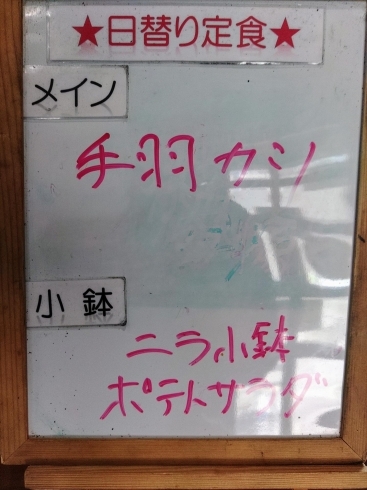 ★日替り定食★
メイン
手羽カシ
小鉢
ニラ小鉢
ポテトサラダ